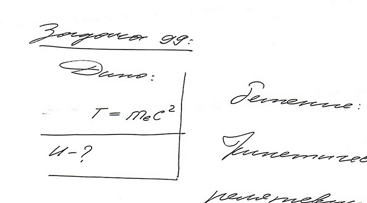 Задача 99:
Дано:
T = mₑc²
u - ?
Решение:
Кинетичес
релятиви